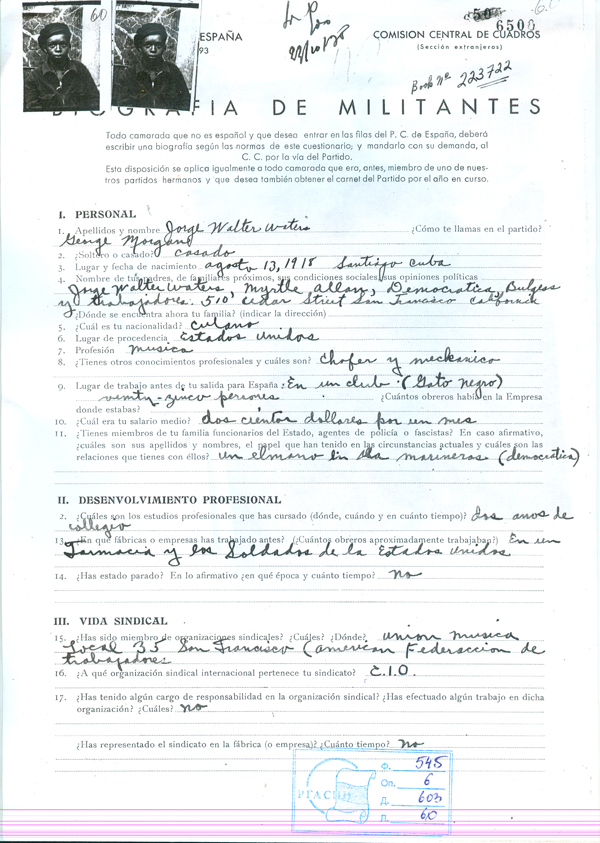 60
ESPAÑA
93
22/10/38
50
6500
COMISION CENTRAL DE CUADROS
(Sección extranjeros)
Book No. 223722
BIOGRAFIA DE MILITANTES
Todo camarada que no es español y que desea entrar en las filas del P. C. de España, deberá
escribir una biografía según las normas de este cuestionario; y mandarlo con su demanda, al
C. C. por la vía del Partido.
Esta disposición se aplica igualmente a todo camarada que era, antes, miembro de uno de nues-
tros partidos hermanos y que desea también obtener el carnet del Partido por el año en curso.
I. PERSONAL
1. Apellidos y nombre Jorge Walter Waters ¿Cómo te llamas en el partido?
George Morgand
2. ¿Soltero o casado? casado
3. Lugar y fecha de nacimiento agosto 13, 1918 Santiago Cuba
4. Nombre de tus padres, de familiares próximos, sus condiciones sociales, sus opiniones políticas
Jorge Walter Waters, Myrtle Allan, Democratica, Bulgeos
y trabajadores. 510, Cedar Street San Francisco California
¿Dónde se encuentra ahora tu familia? (indicar la dirección)
5. ¿Cuál es tu nacionalidad? cubano
6. Lugar de procedencia Estados Unidos
7. Profesión musica
8. ¿Tienes otros conocimientos profesionales y cuáles son? Chofer y meckanico
9. Lugar de trabajo antes de tu salida para España: En un club: (Gato Negro)
veinty-zinco periones ¿Cuántos obreros había en la Empresa
donde estabas?
10. ¿Cuál era tu salario medio? dos cientor dollares por un mes
11. ¿Tienes miembros de tu familia funcionarios del Estado, agentes de policía o fascistas? En caso afirmativo,
¿cuáles son sus apellidos y nombres, el papel que han tenido en las circunstancias actuales y cuáles son las
relaciones que tienes con éllos? un elmano en la marineras (democratica)
II. DESENVOLVIMIENTO PROFESIONAL
2. ¿Cuáles son los estudios profesionales que has cursado (dónde, cuándo y en cuánto tiempo)? dos anos de
collegio
13. ¿En qué fábricas o empresas has trabajado antes? (¿Cuántos obreros aproximadamente trabajaban?) En un
Farmacia y los Soldados de la Estados Unidos
14. ¿Has estado parado? En lo afirmativo ¿en qué época y cuánto tiempo? no
III. VIDA SINDICAL
15. ¿Has sido miembro de organizaciones sindicales? ¿Cuáles? ¿Dónde? union musica
Local 35 San Francisco (american Federaccion de
trabajadores
16. ¿A qué organización sindical internacional pertenece tu sindicato? C.I.O.
17. ¿Has tenido algún cargo de responsabilidad en la organización sindical? ¿Has efectuado algún trabajo en dicha
organización? ¿Cuáles? no
¿Has representado el sindicato en la fábrica (o empresa)? ¿Cuánto tiempo? no
Ф. 545
Оп. 6
Д. 603
Л. 60